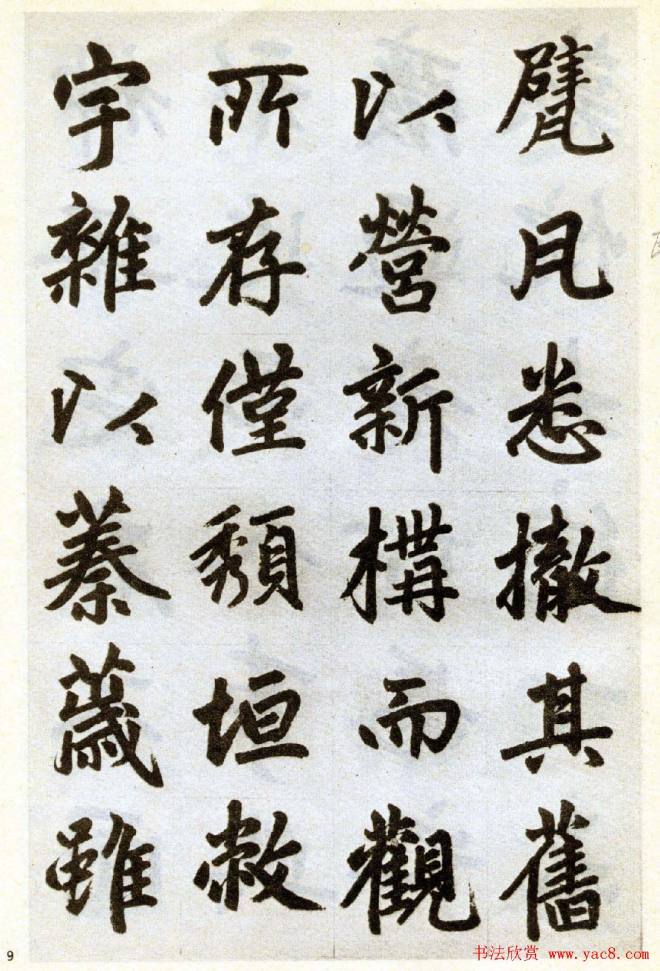 甓瓦悉撤其舊
以營新構而觀
所存僅頽垣敝
宇雜以蓁薉雖
9
书法欣赏 www.yac8.com